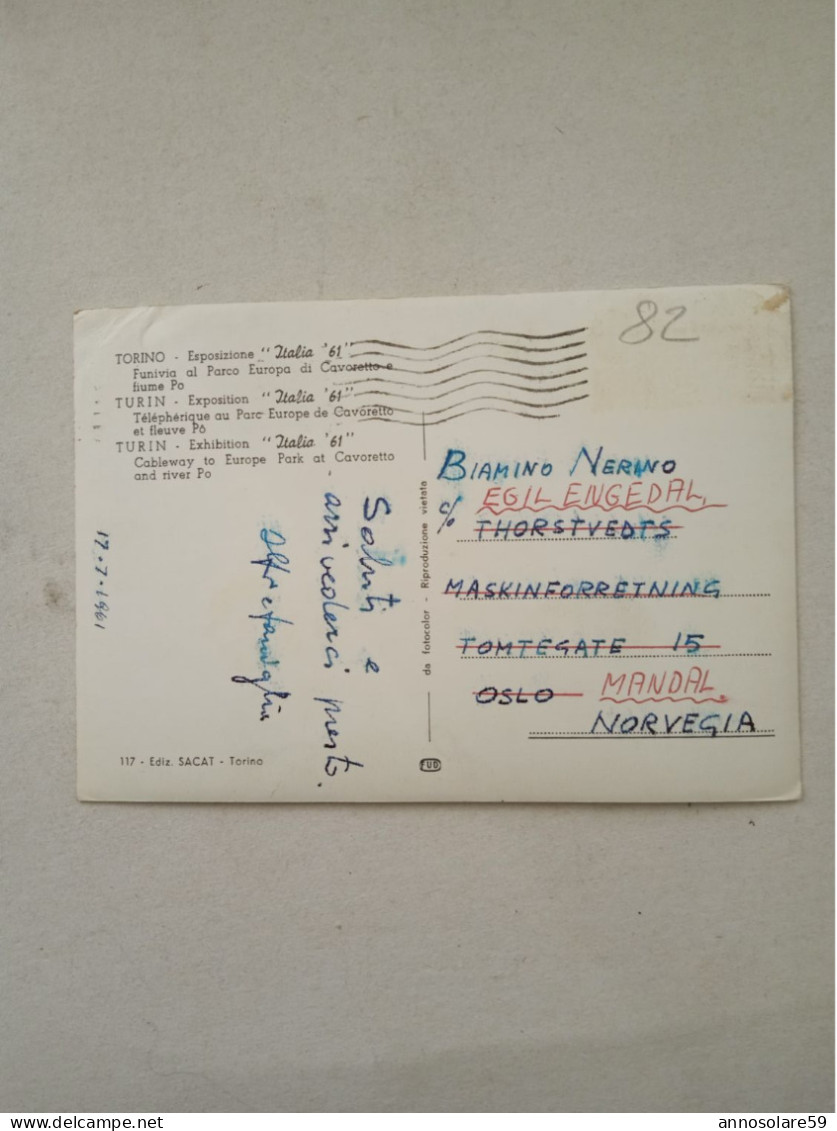 82
TORINO - Esposizione "Italia '61"
Funivia al Parco Europa di Cavoretto e
fiume Po
TURIN - Exposition "Italia '61"
Téléphérique au Parc Europe de Cavoretto
et fleuve Pô
TURIN - Exhibition "Italia '61"
Cableway to Europe Park at Cavoretto
and river Po
Saluti e
arrivederci presto.
e famiglia
17.7.1961
117 - Ediz. SACAT - Torino
da fotocolor - Riproduzione vietata
BIAMINO NERINO
c/o EGIL ENGEDAL
THORSTVEDTS
MASKINFORRETNING
TOMTEGATE 15
OSLO MANDAL.
NORVEGIA
annosolare59